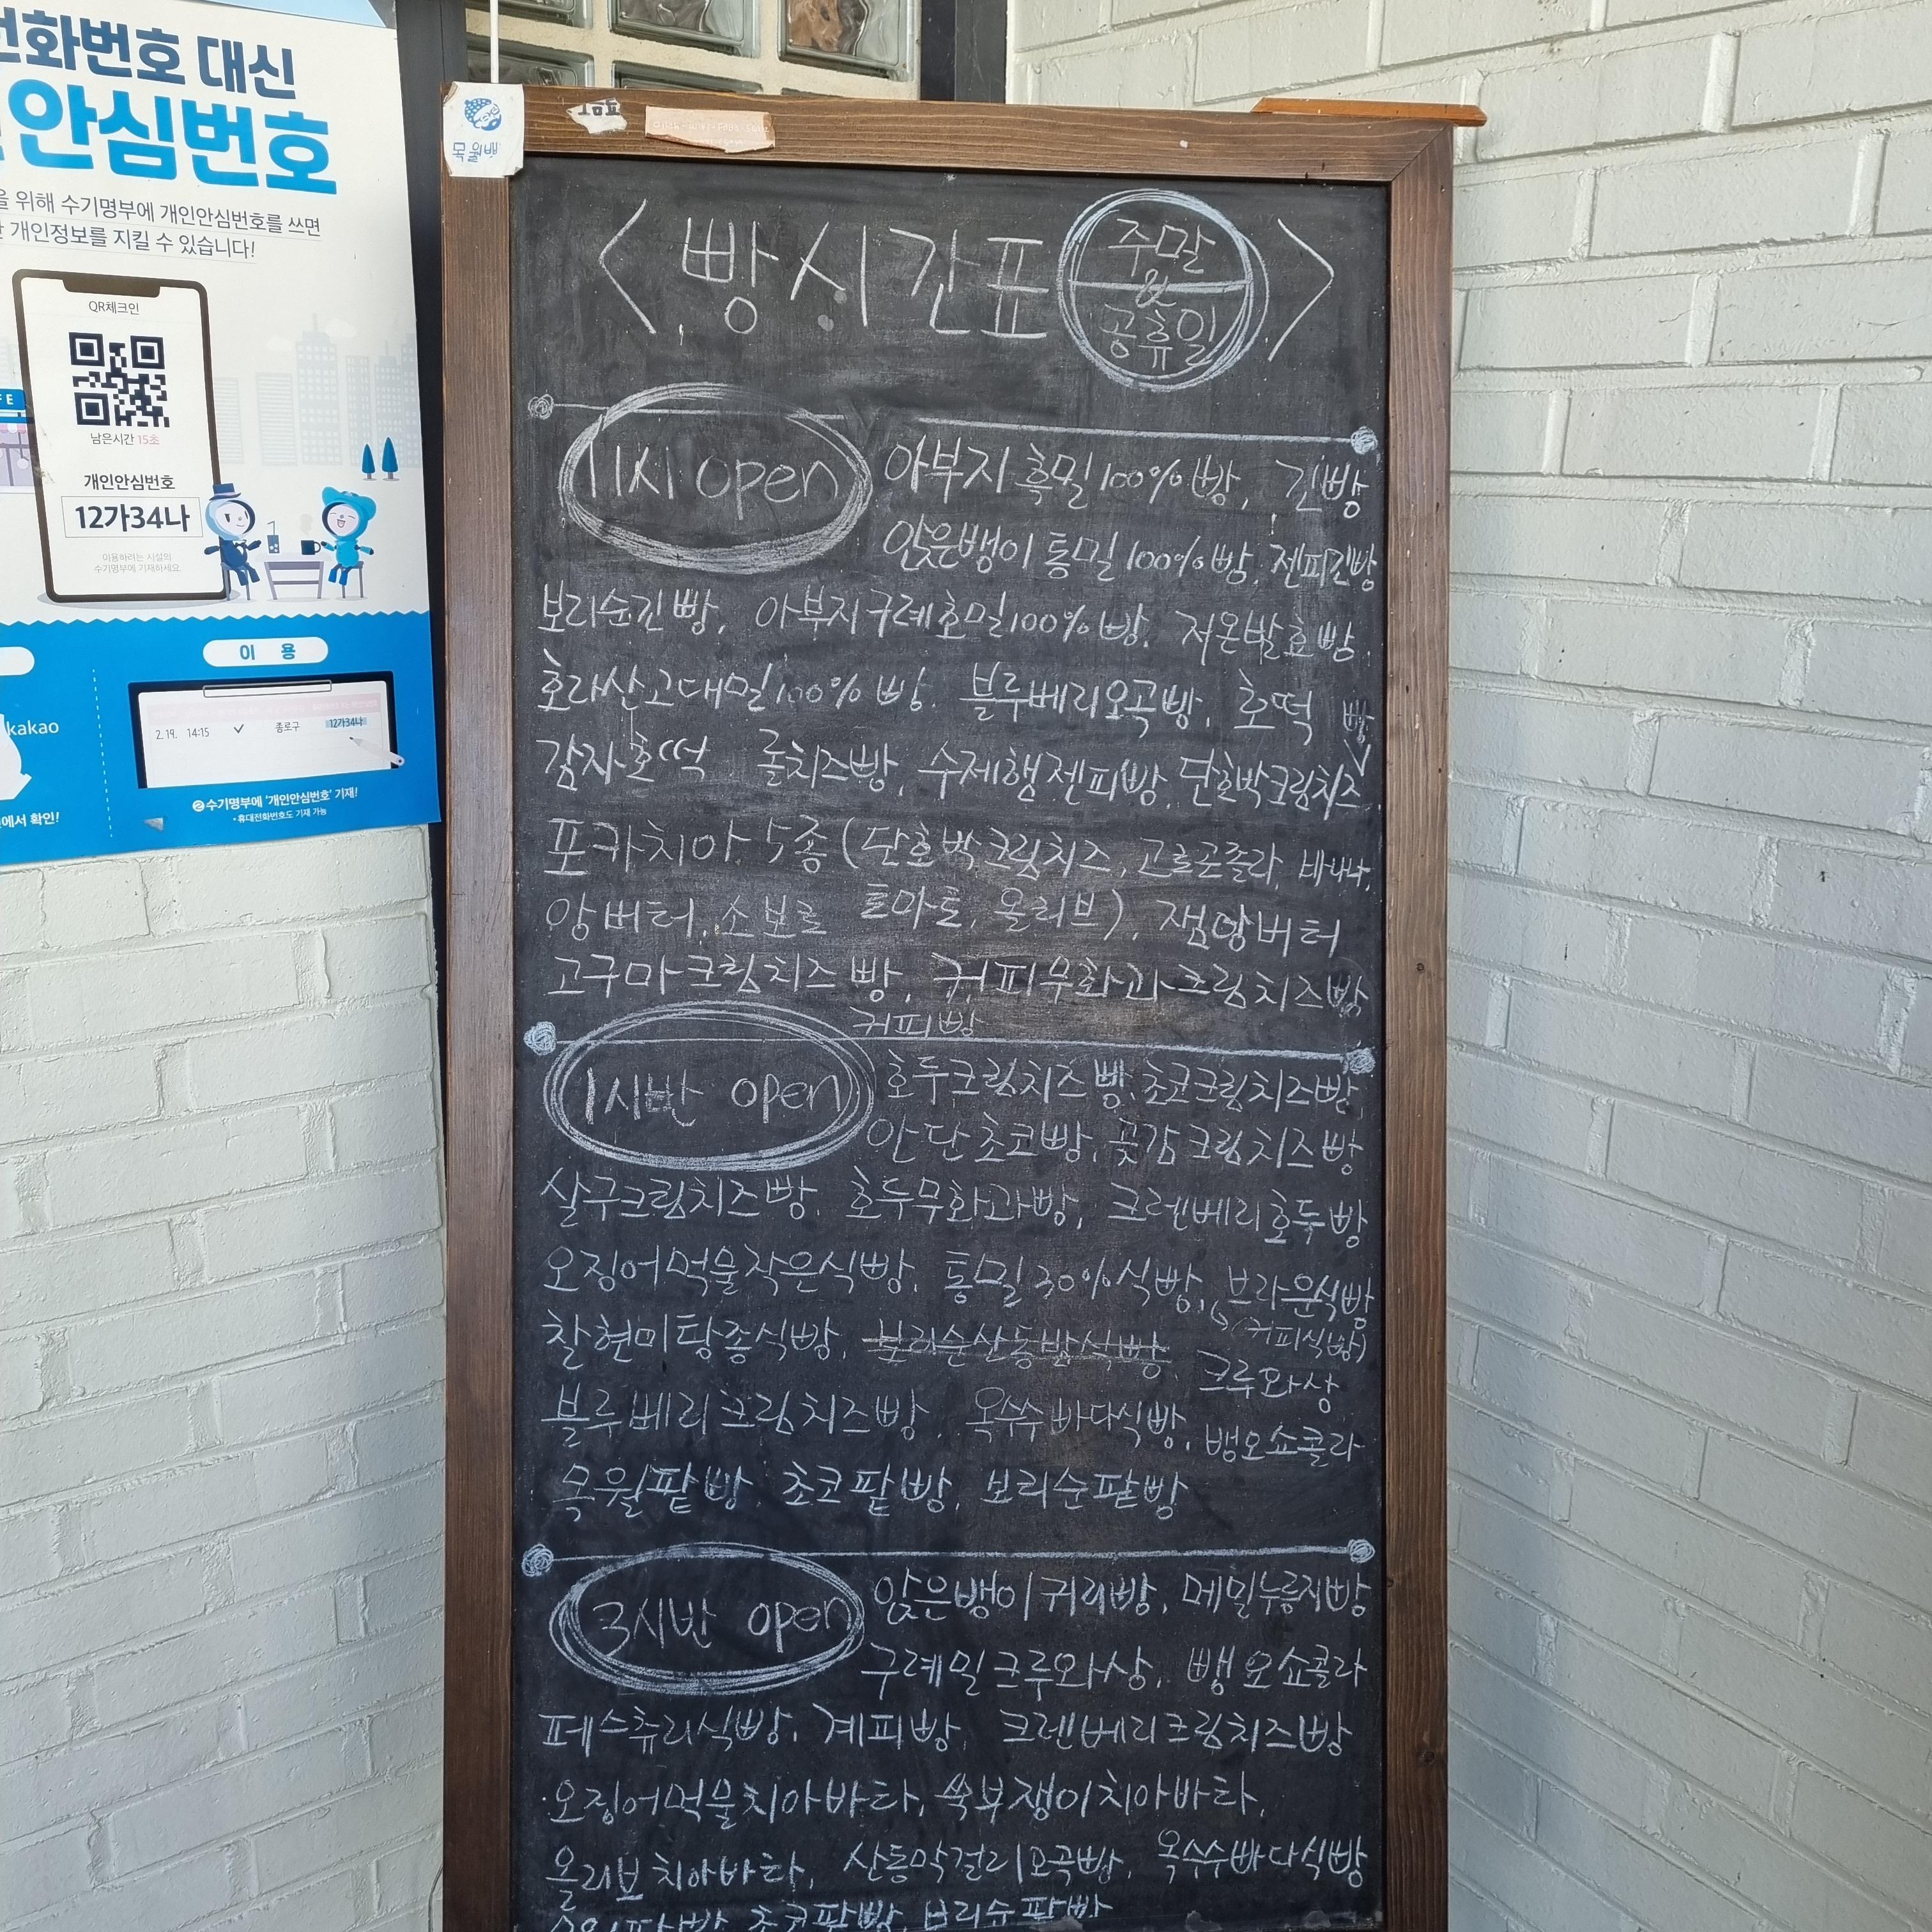 전화번호 대신
안심번호
을 위해 수기명부에 개인안심번호를 쓰면
개인정보를 지킬 수 있습니다!
QR체크인
남은시간 15초
개인안심번호
12가34나
이용하려는 시설의
수기명부에 기재하세요
이 용
kakao
2.19. 14:15 종로구 12가34나
에서 확인!
❷수기명부에 '개인안심번호' 기재!
• 휴대전화번호도 기재 가능
목월빵
<빵시간표 주말 & 공휴일>
11시 open
아부지 흑밀 100% 빵, 긴빵
앉은뱅이 통밀 100% 빵, 젠피긴빵
보리순긴빵, 아부지구례호밀100%빵, 저온발효빵.
호라산고대밀100% 빵. 블루베리오곡빵, 호떡
감자호떡 롤치즈빵, 수제햄젠피빵, 단호박크림치즈빵
포카치아 5종 (단호박크림치즈, 고르곤졸라, 바나나,
토마토, 올리브), 잼앙버터
앙버터, 소보로
고구마크림치즈빵, 커피무화과크림치즈빵
커피빵
1시반 open
호두크림치즈빵, 초코크림치즈빵,
안단초코빵, 곶감크림치즈빵
살구크림치즈빵, 호두무화과빵, 크렌베리호두빵
오징어먹물작은식빵, 통밀30%식빵, 브라운식빵
(커피식빵)
찰현미탕종식빵, 보리순산동반식빵
크루와상
블루베리크림치즈빵, 옥수수바다식빵, 뱅오쇼콜라
목월팥빵, 초코팥빵, 보리순팥빵
3시반 open
앉은뱅이귀리빵, 메밀누룽지빵
구례밀크루와상, 뺑오쇼콜라
페스츄리식빵, 계피빵, 크렌베리크림치즈빵
오징어먹물치아바타, 쑥부쟁이치아바타,
올리브치아바타, 산동막걸리오곡빵, 옥수수빠다식빵
초코팥빵, 보리순팥빵